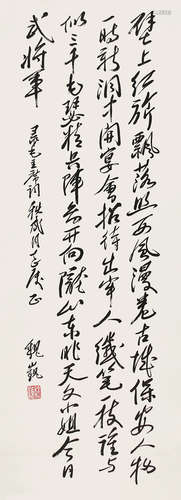 壁上红旗飘落照西风漫卷古城保安人物
一时新洞中開宴會招待出牢人纖笔一枝谁与
似三千毛瑟精兵阵图开向陇山东昨天文小姐今日
武将军
录毛主席词 正
魏巍